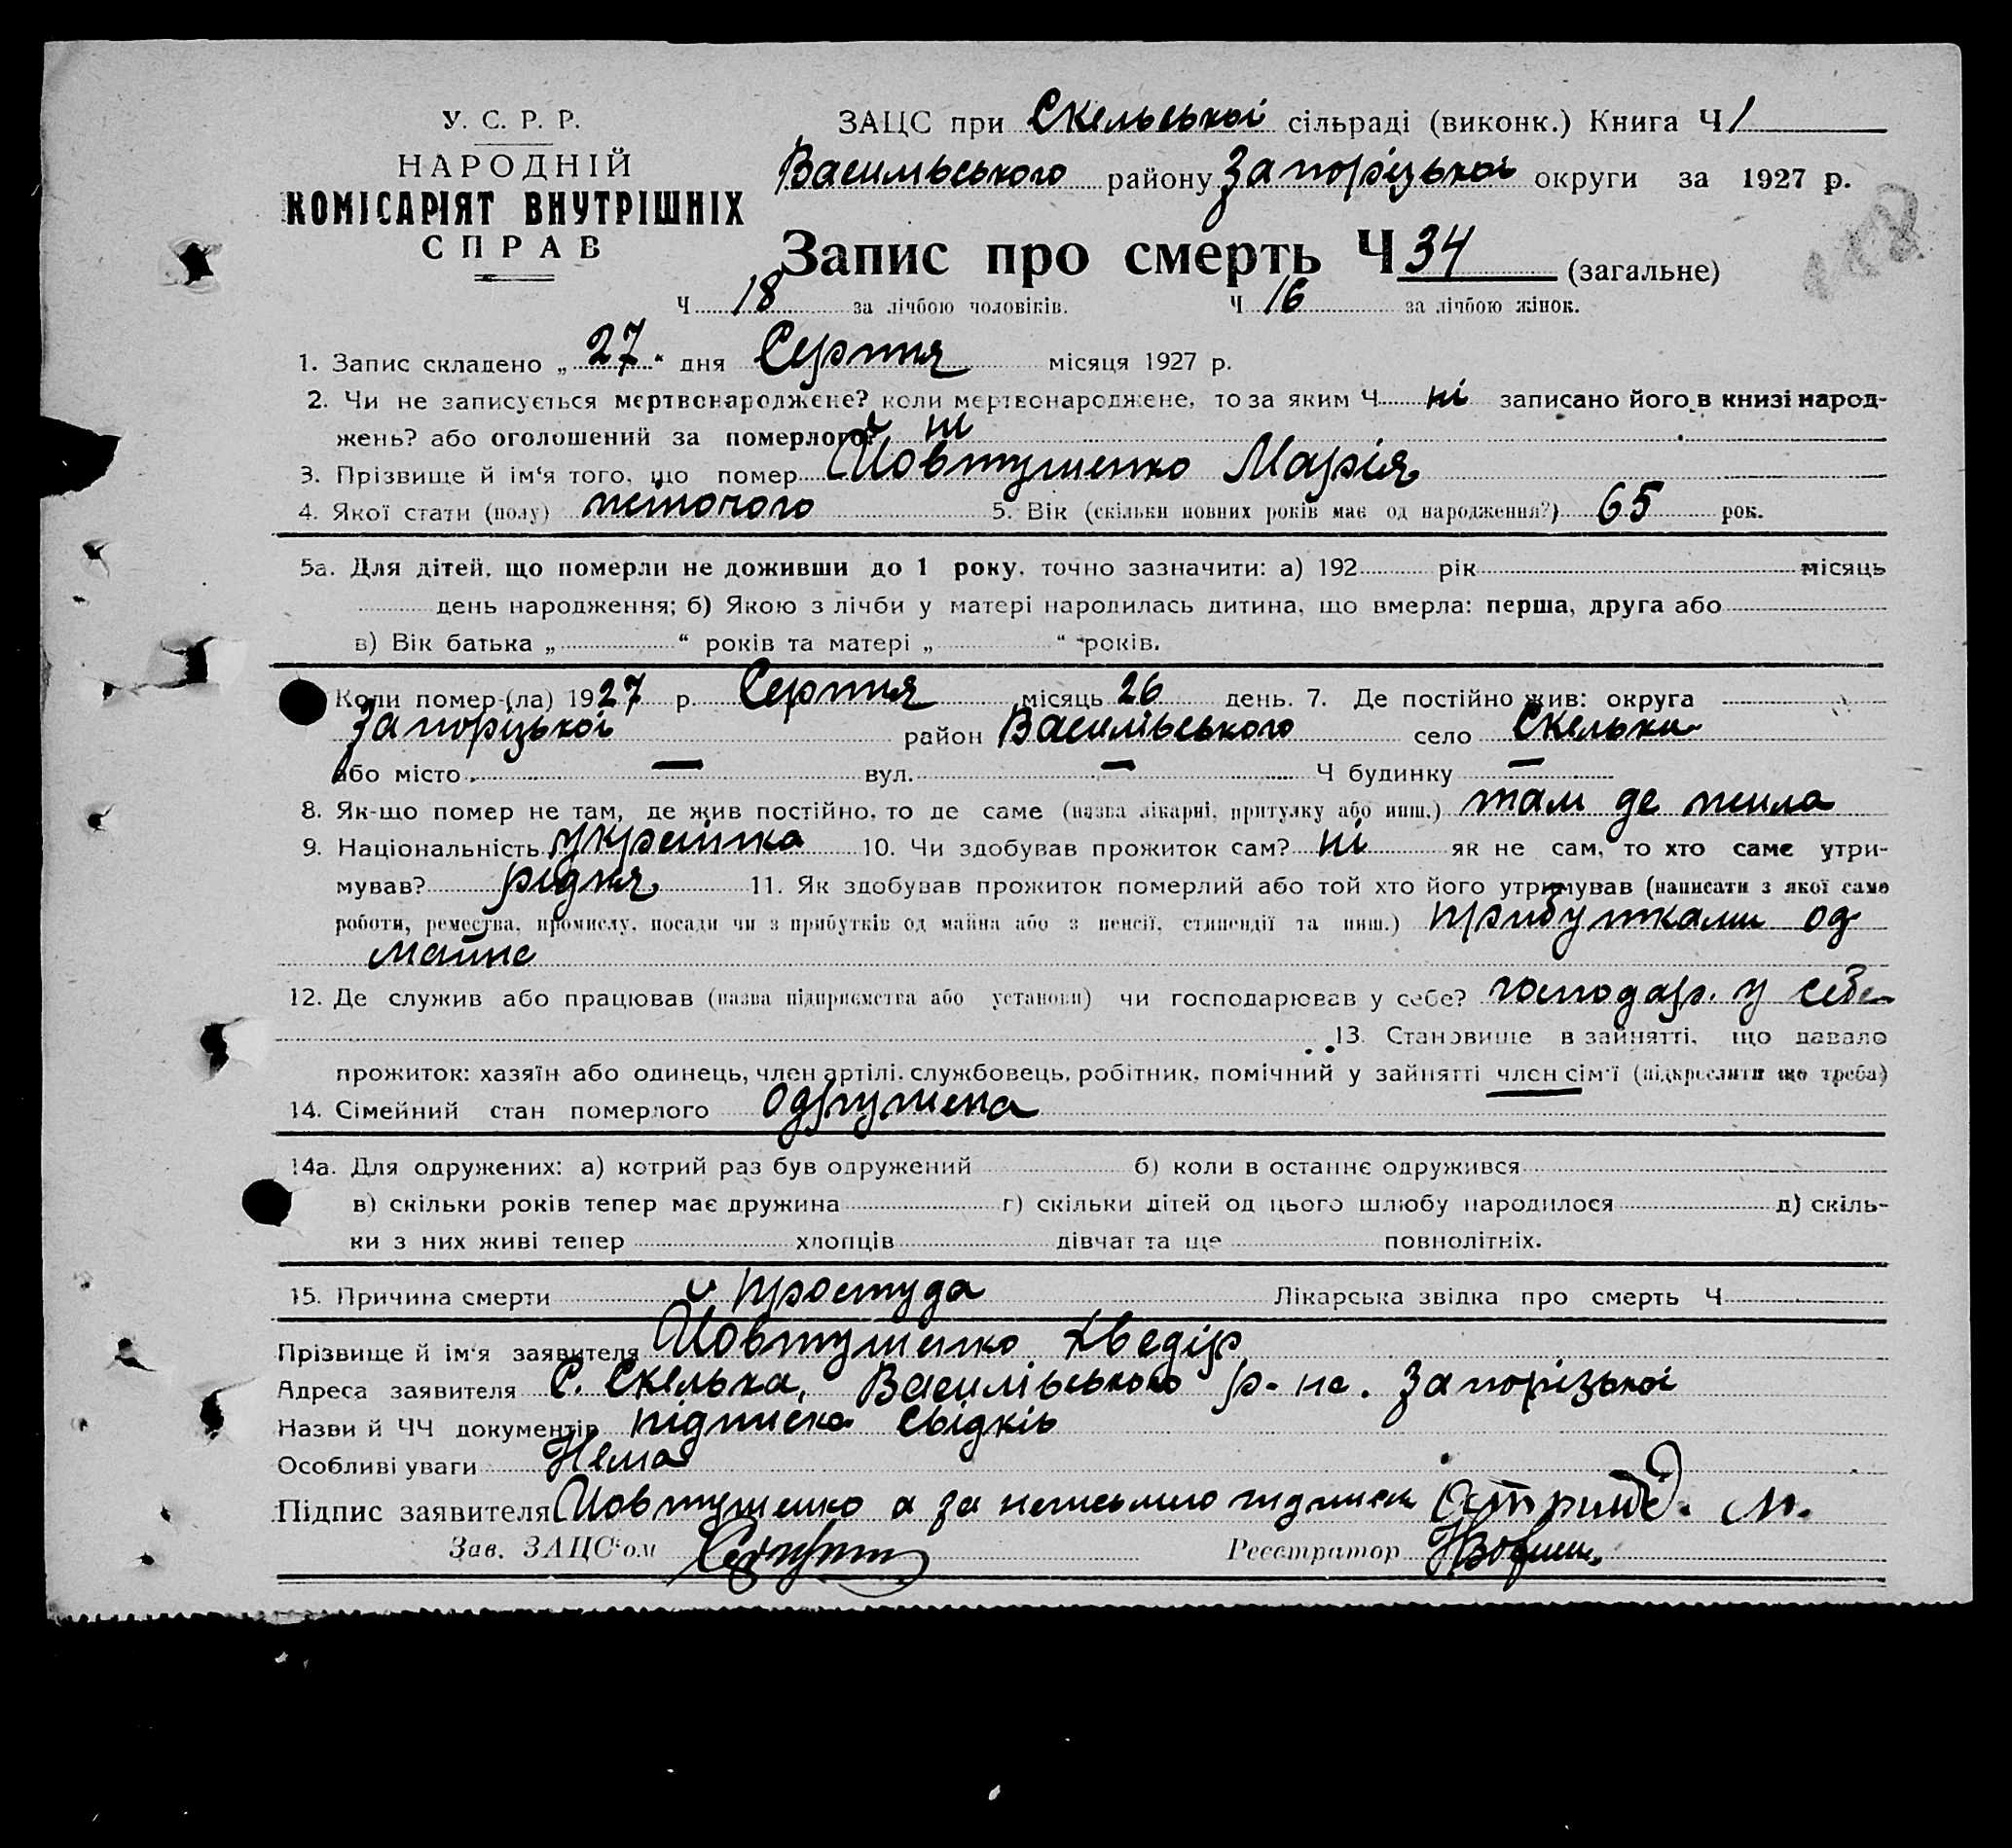 У. С. Р. Р.
НАРОДНІЙ
КОМІСАРІЯТ ВНУТРІШНІХ
СПРАВ
ЗАЦС при Скельської сільраді (виконк.) Книга Ч 1
Васильського району Запорізької округи за 1927 р.
Запис про смерть Ч 34 (загальне)
Ч 18 за лічбою чоловіків. Ч 16 за лічбою жінок.
1. Запис складено „27“ дня Серпня місяця 1927 р.
2. Чи не записується мертвонароджене? коли мертвонароджене, то за яким Ч ні записано його в книзі народ-
жень? або оголошений за померлого? ні
3. Прізвище й ім‘я того, що помер Йовтушенко Марія
4. Якої стати (полу) жіночого 5. Вік (скільки повних років має од народження?) 65 рок.
5а. Для дітей, що померли не доживши до 1 року, точно зазначити: а) 192 рік місяць
день народження; б) Якою з лічби у матері народилась дитина, що вмерла: перша, друга або
в) Вік батька „ “ років та матері „ “ років.
Коли помер-(ла) 1927 р. Серпня місяць 26 день. 7. Де постійно жив: округа
Запорізької район Василівського село Скелька
або місто — вул. — Ч будинку —
8. Як-що помер не там, де жив постійно, то де саме (назва лікарні, притулку або инш.) там де жила
9. Національність українка 10. Чи здобував прожиток сам? ні як не сам, то хто саме утри-
мував? рідня 11. Як здобував прожиток померлий або той хто його утримував (написати з якої само
роботи, ремества, промислу, посади чи з прибутків од майна або з пенсії, стипендії та инш.) прибутками од
майна
12. Де служив або працював (назва підприємства або установи) чи господарював у себе? господар. у себе
13. Становище в зайнятті, що давало
прожиток: хазяїн або одинець, член артілі, службовець, робітник, помічний у зайнятті член сім‘ї (підкреслити що треба)
14. Сімейний стан померлого одружена
14а. Для одружених: а) котрий раз був одружений б) коли в останнє одружився
в) скільки років тепер має дружина г) скільки дітей од цього шлюбу народилося д) скіль-
ки з них живі тепер хлопців дівчат та ще повнолітніх.
15. Причина смерти простуда Лікарська звідка про смерть Ч
Прізвище й ім‘я заявителя Йовтушенко Хведір
Адреса заявителя С. Скелька, Василівського р-на. Запорізької
Назви й ЧЧ документів підписка свідків
Особливі уваги Нема
Підпис заявителя Йовтушенко а за неписьмено підписи М.
Зав. ЗАЦС‘ом Реєстратор